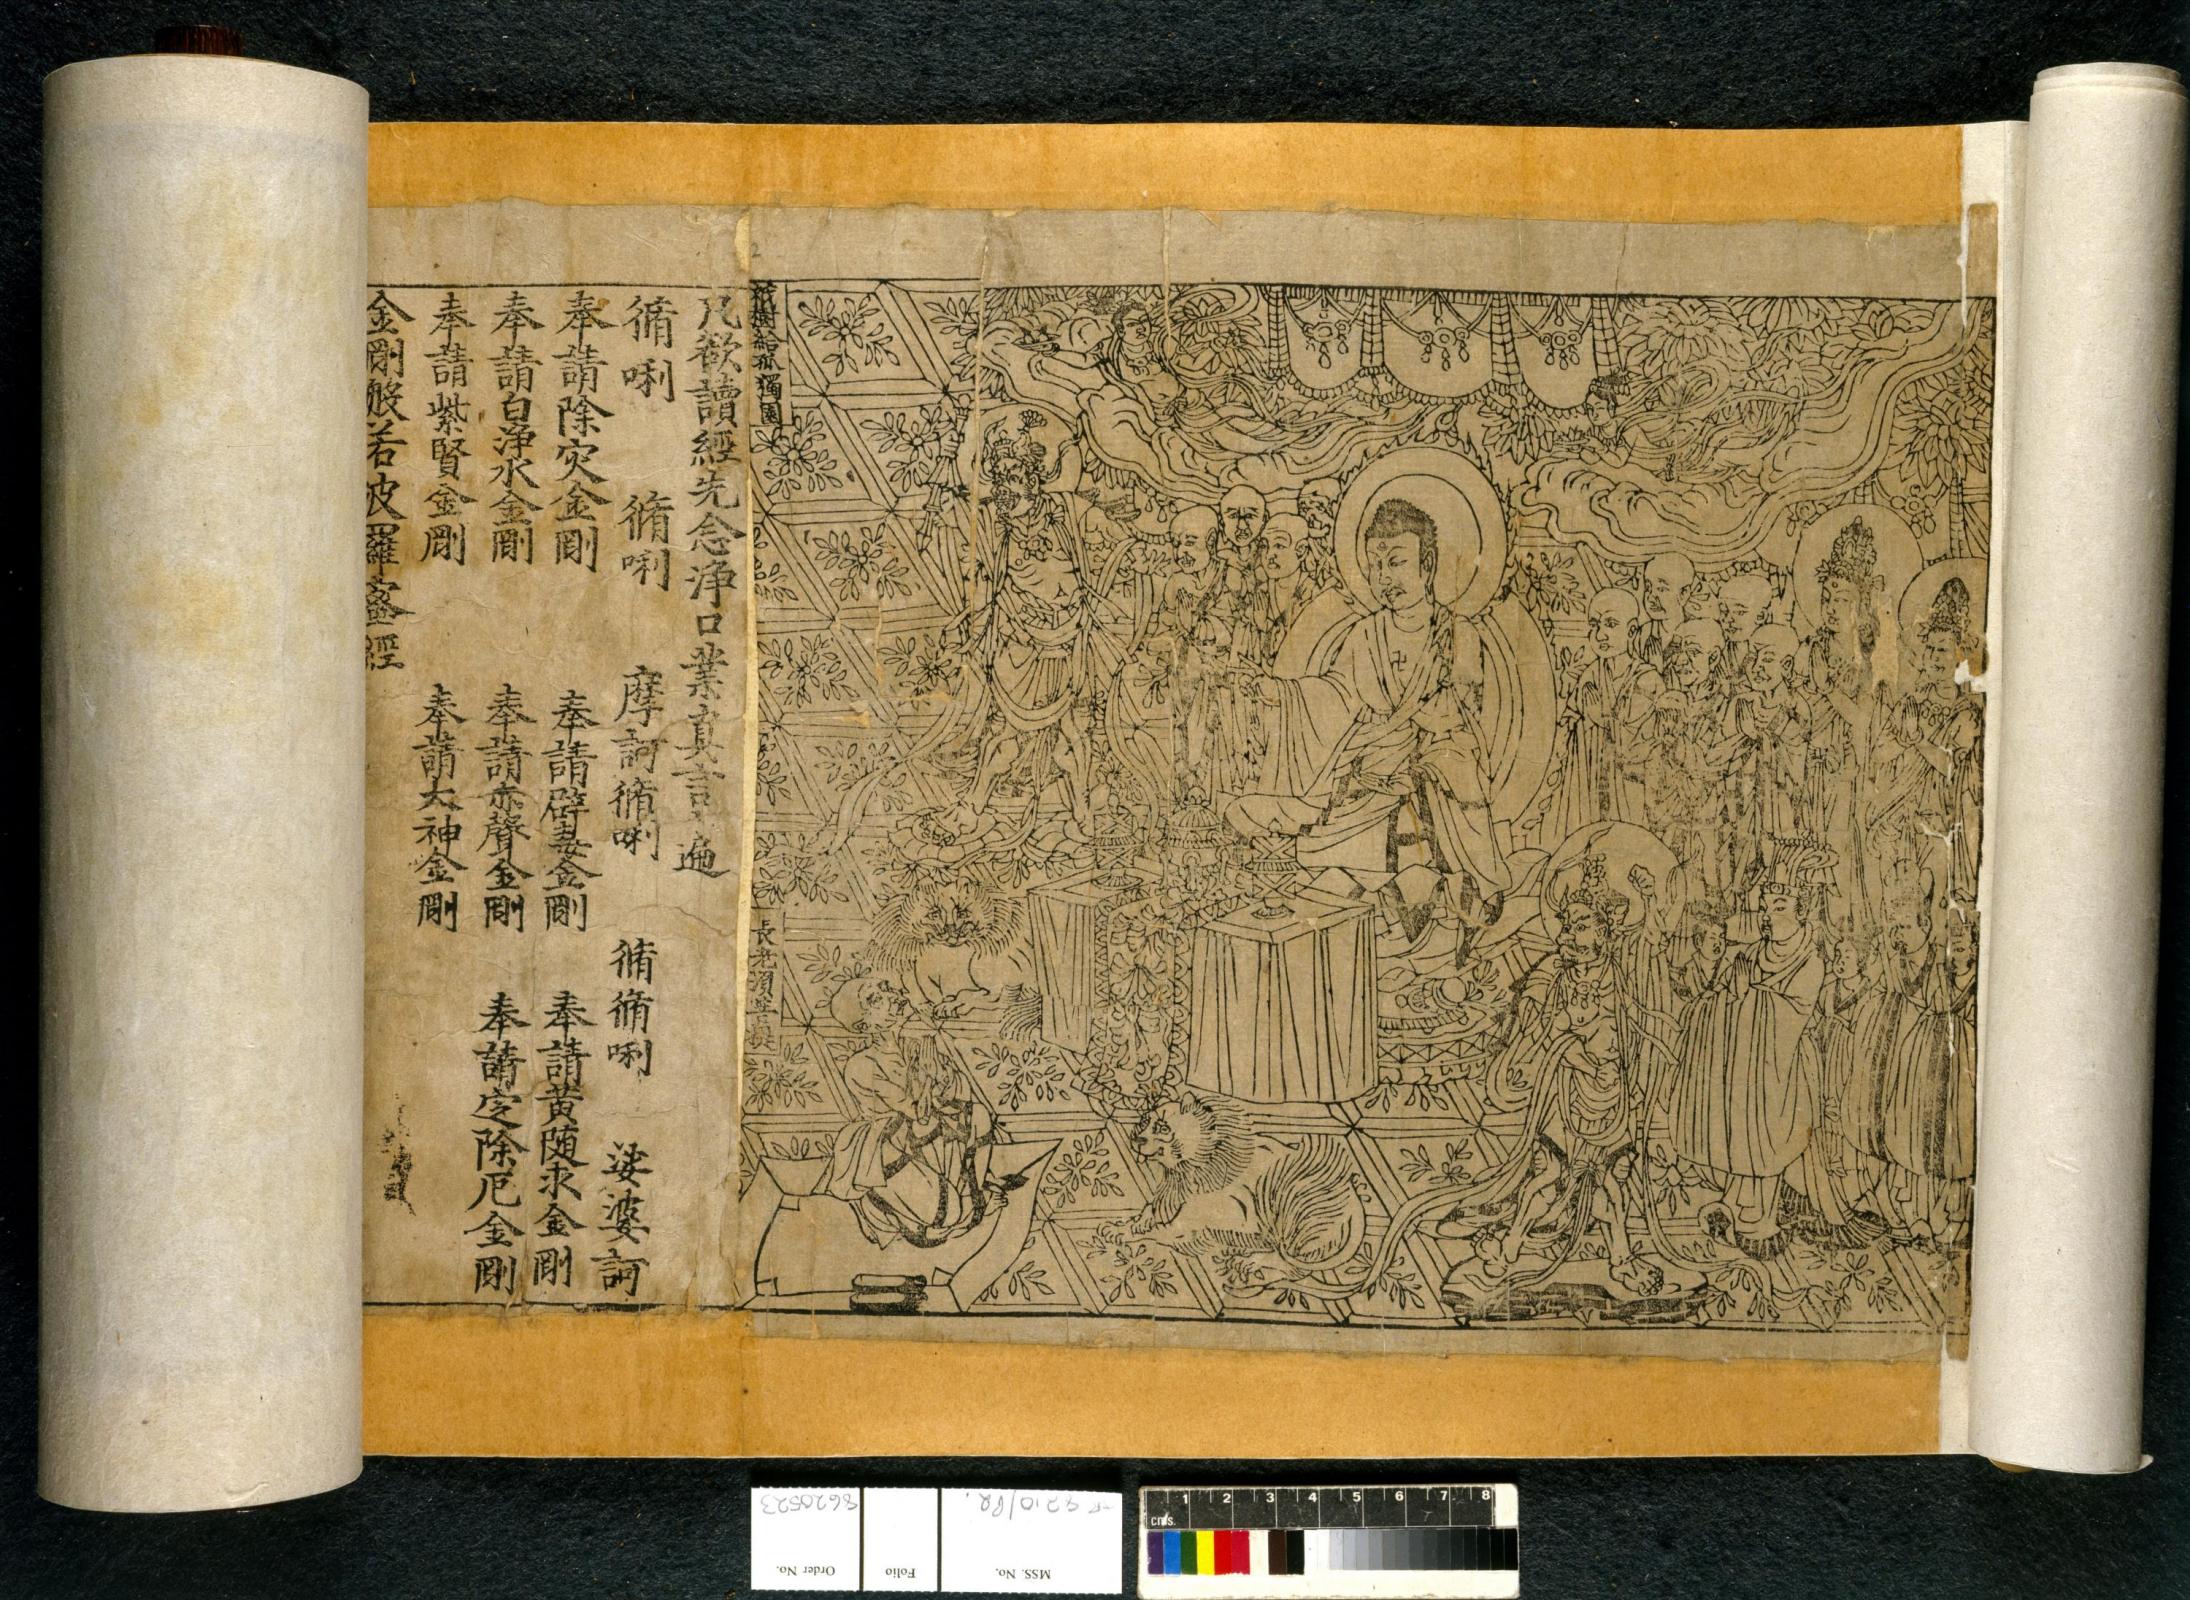 祇樹給孤獨園
長老須菩提
凡欲讀經先念淨口業真言一遍
脩唎 脩唎 摩訶脩唎 脩脩唎 娑婆訶
奉請除灾金剛 奉請辟毒金剛 奉請黃随求金剛
奉請白淨水金剛 奉請赤聲金剛 奉請定除厄金剛
奉請紫賢金剛 奉請大神金剛
金剛般若波羅蜜經
2
Order No. 8620523
Folio
MSS. No. 8210/P2
cms. 1 2 3 4 5 6 7 8